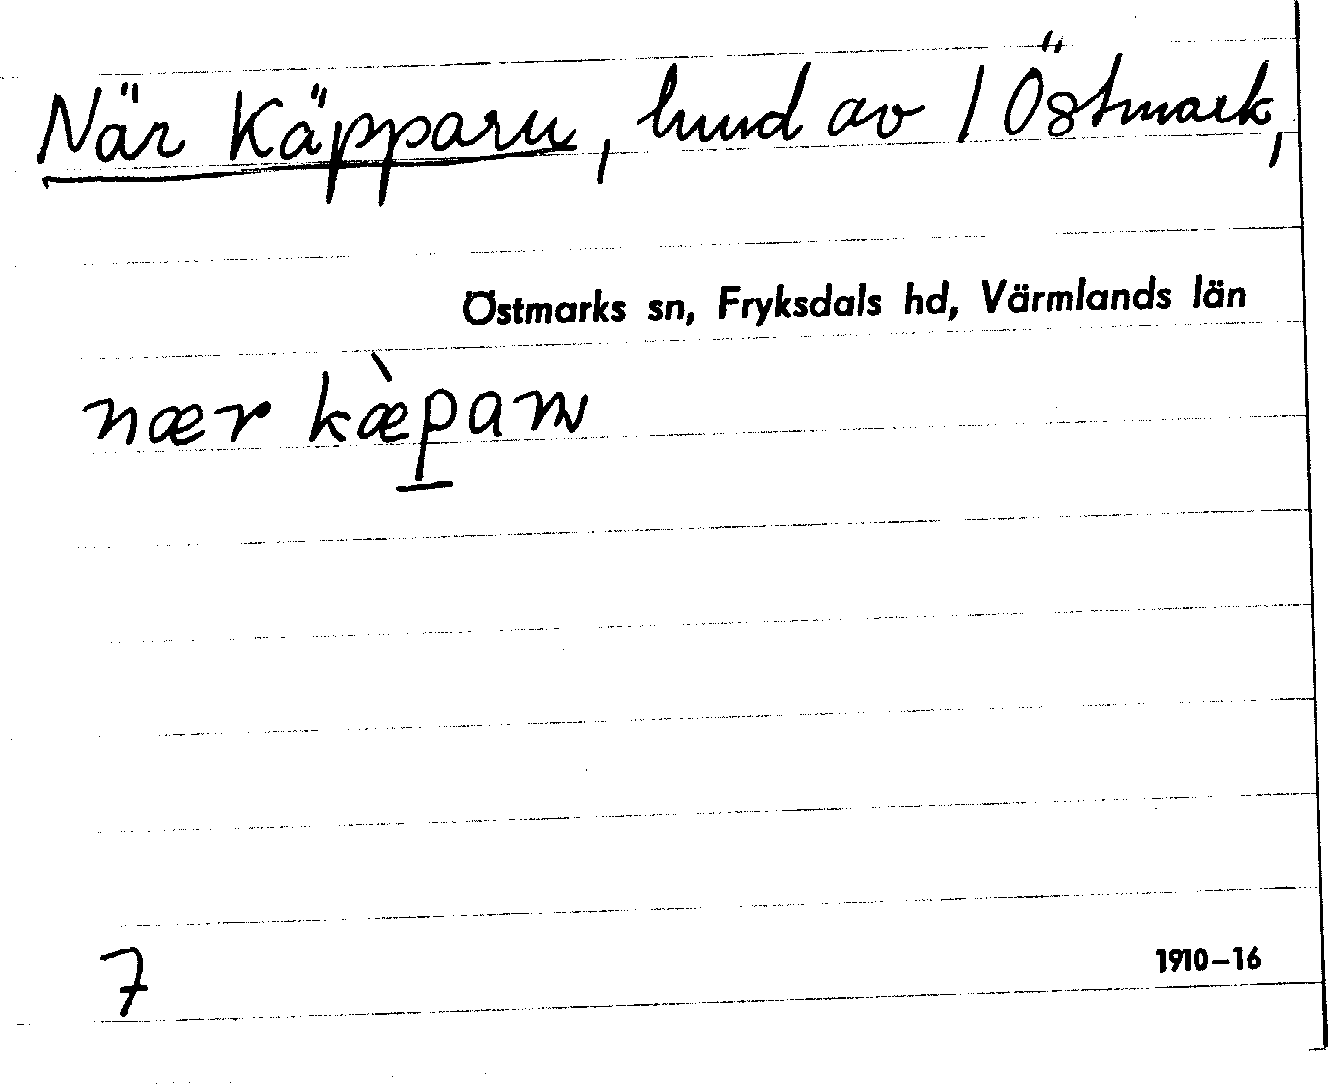 När Käpparn, hmd av 1 Östmark,
Östmarks sn, Fryksdals hd, Värmlands län
nær kæ̀parn
7
1910–16